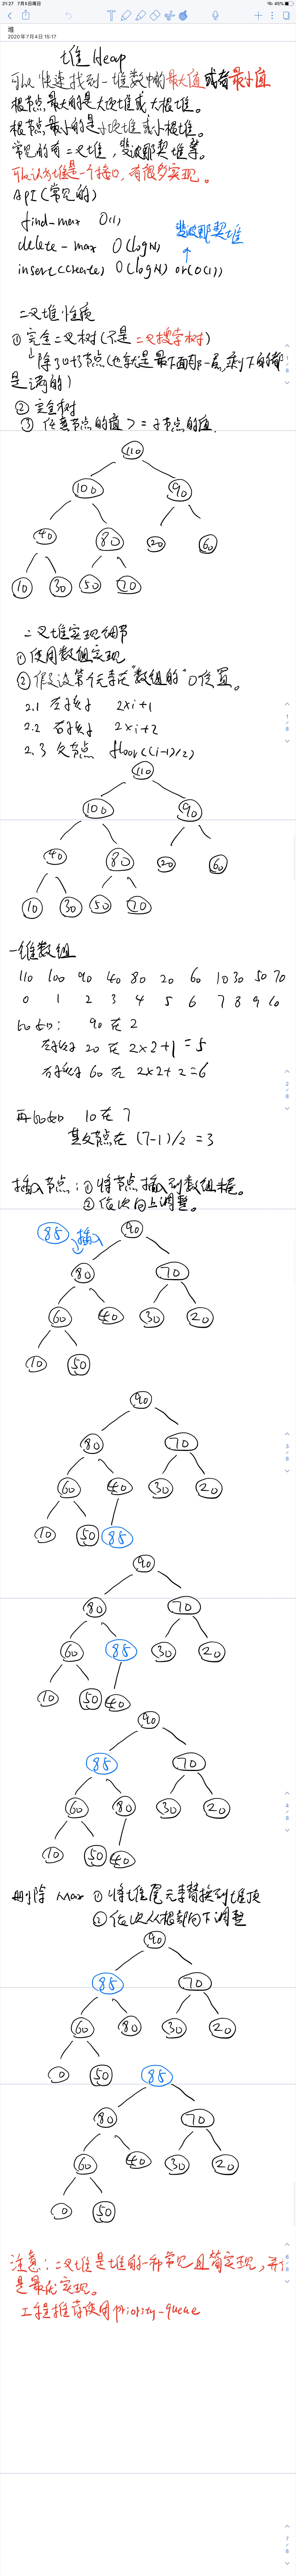 21:27 7月5日周日
45%
堆
2020年7月4日 15:17
堆 Heap
可以快速找到一堆数中的最大值或者最小值
根节点最大的是大顶堆或大根堆。
根节点最小的是小顶堆或小根堆。
常见的有二叉堆，斐波那契堆等。
可以认为堆是一个接口，有很多实现。
API(常见的)
find-max O(1)
斐波那契堆
delete-max O(logN)
insert(create) O(logN) or(O(1))
二叉堆性质
① 完全二叉树(不是二叉搜索树)
除了叶子节点(也就是最下面的一层,剩下的都
是满的)
② 完全树
③ 任意节点的值 >= 子节点的值.
110
100 90
40 80 20 60
10 30 50 70
二叉堆实现细节
①使用数组实现
②假设第一个元素在"数组的"0位置。
2.1 左孩子 2×i+1
2.2 右孩子 2×i+2
2.3 父节点 floor((i-1)/2)
110
100 90
40 80 20 60
10 30 50 70
一维数组
110 100 90 40 80 20 60 10 30 50 70
0 1 2 3 4 5 6 7 8 9 10
比如: 90 在 2
左孩子 20 在 2×2+1=5
右孩子 60 在 2×2+2=6
再比如 10在 7
其父节点在 (7-1)/2 =3
插入节点:①将节点插入到数组末尾。
②依次向上调整。
85 插入 90
80 70
60 40 30 20
10 50
90
80 70
60 40 30 20
10 50 85
90
80 70
60 85 30 20
10 50 40
90
85 70
60 80 30 20
10 50 40
删除 max ①将堆尾元素替换到堆顶
②依次从根部向下调整
90
85 70
60 80 30 20
0 50 85
80 70
60 40 30 20
0 50
注意:二叉堆是堆的一种常见且简实现,并
是最优实现。
工程推荐使用priority-queue
1/8
1/8
2/8
3/8
4/8
6/8
7/8